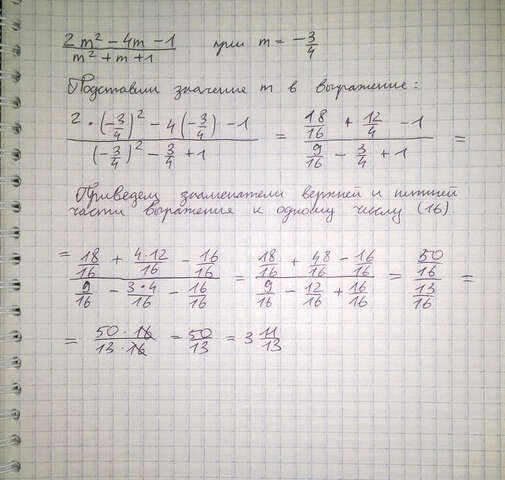 (2m² - 4m - 1)/(m² + m + 1) при m = -3/4
Подставим значение m в выражение:
(2 · (-3/4)² - 4(-3/4) - 1)/((-3/4)² - 3/4 + 1) = (18/16 + 12/4 - 1)/(9/16 - 3/4 + 1) =
Приведем знаменатели верхней и нижней
части выражение к одному числу (16)
= (18/16 + 4·12/16 - 16/16)/(9/16 - 3·4/16 - 16/16) = (18/16 + 48/16 - 16/16)/(9/16 - 12/16 + 16/16) = (50/16)/(13/16) =
= (50 · 16)/(13 · 16) = 50/13 = 3 11/13